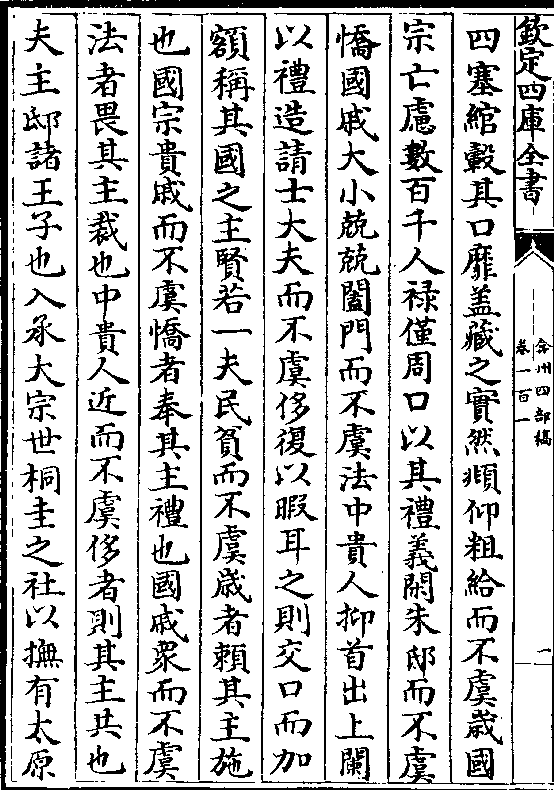 欽定四庫全書
弇州四部稿
卷一百一
一
四塞綰轂其口靡盖藏之實然頫仰粗給而不虞歲國
宗亡慮數百千人禄僅周口以其禮義閑朱邸而不虞
憍國戚大小兢兢闔門而不虞法中貴人抑首出上闌
以禮造請士大夫而不虞侈復以暇耳之則交口而加
額稱其國之主賢若一夫民貧而不虞歲者賴其主施
也國宗貴戚而不虞憍者奉其主禮也國戚衆而不虞
法者畏其主裁也中貴人近而不虞侈者則其主共也
夫主邸諸王子也入承大宗世桐圭之社以撫有太原